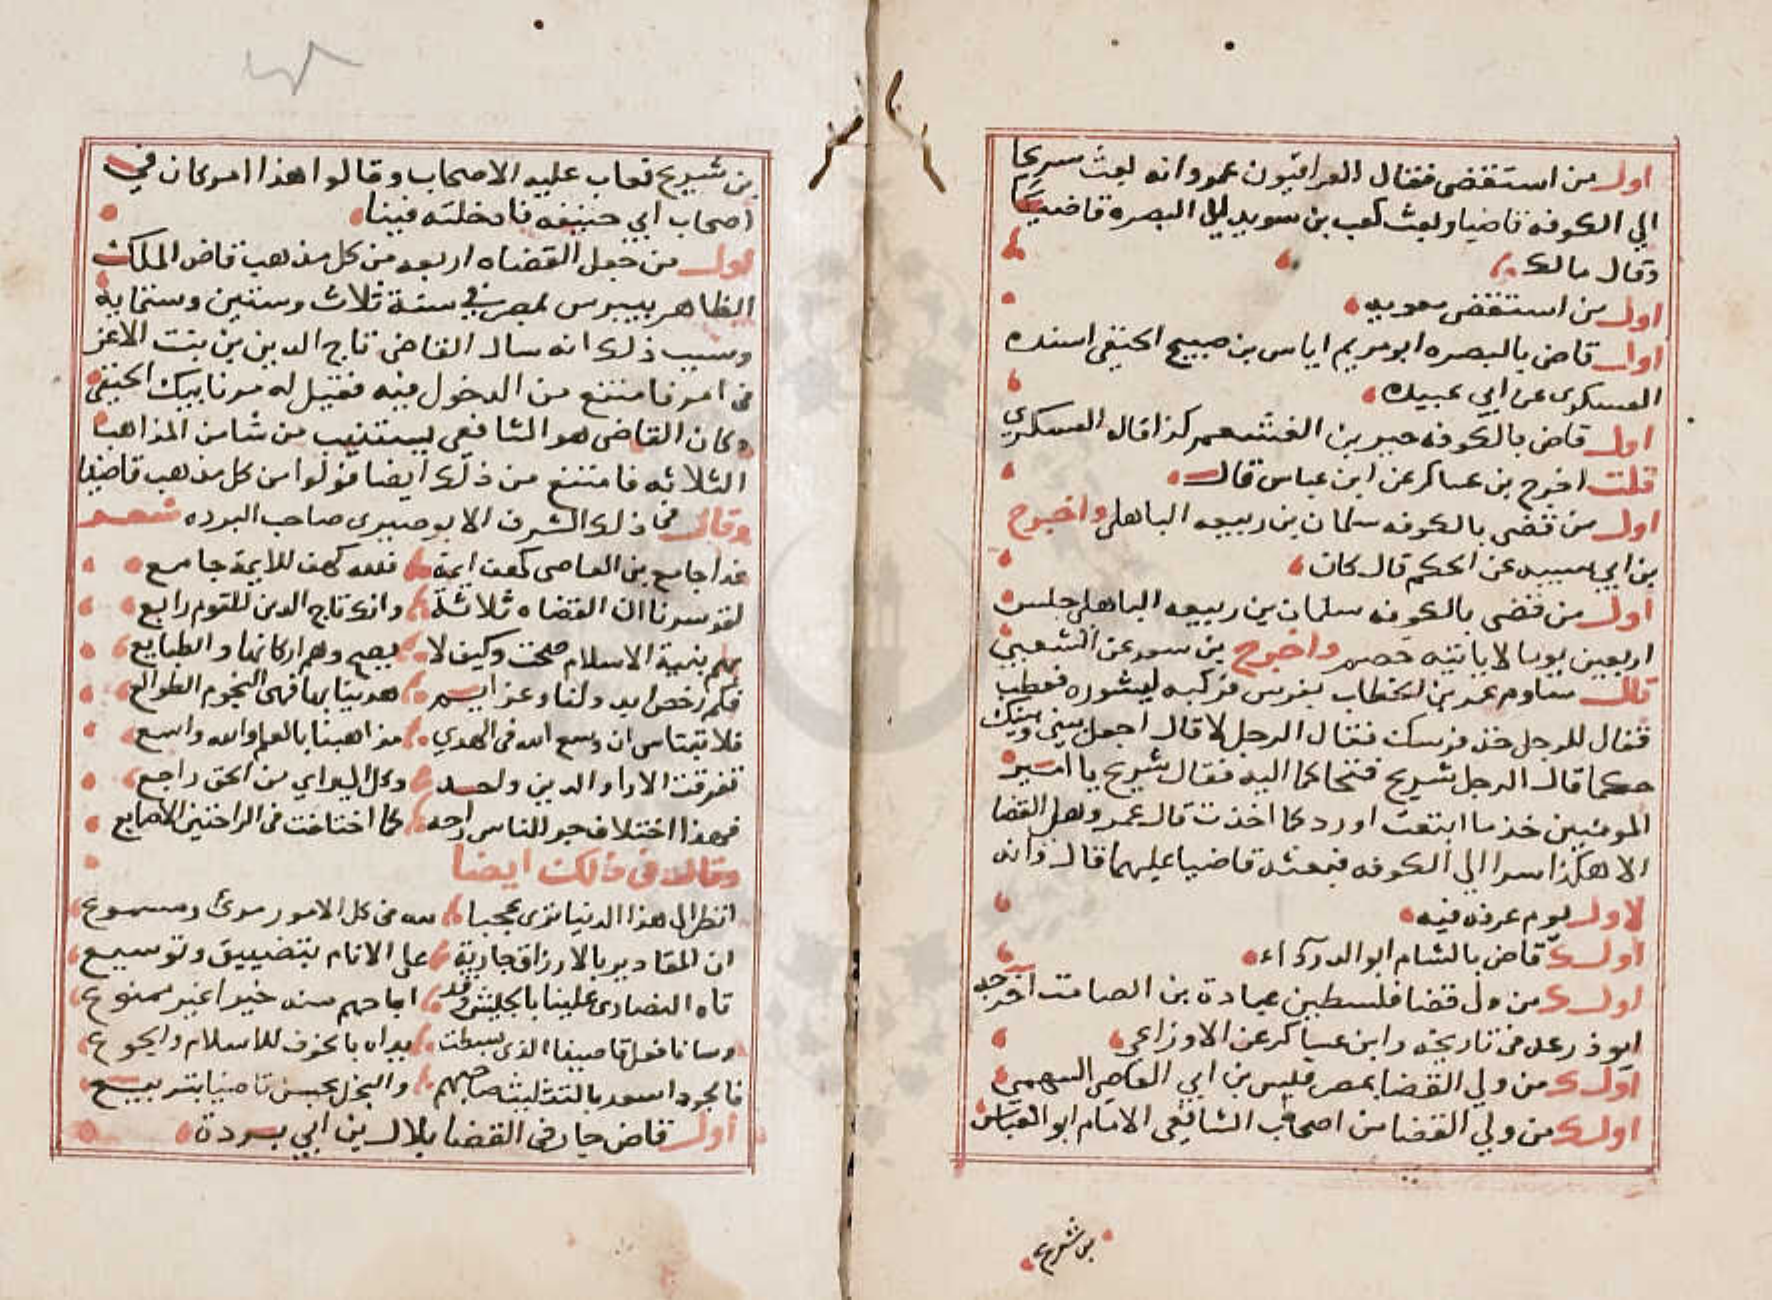 اول من استقضى فقال العراقيون عمر وانه بعث شريحا
الى الكوفه قاضيا وبعث كعب بن سويد الى البصره قاضيا
وقال مالك
اول من استقضى معويه
اول قاض بالبصره ابو مريم اياس بن صبيح الحنفى اسنده
العسكرى عن ابي عبيده
اول قاض بالكوفه جبر بن القشعم كذا قال العسكري
قلت اخرج بن عساكر عن ابن عباس قال
اول من قضى بالكوفه سلمان بن ربيعه الباهلى واخرج
بن ابي شيبه عن الحكم قال كان
اول من قضى بالكوفه سلمان بن ربيعه الباهلى جلس
اربعين يوما لا ياتيه خصم واخرج بن سعد عن الشعبي
قال ساوم عمر بن الخطاب بفرس فركبه ليشوره فعطب
فقال للرجل خذ فرسك فقال الرجل لا قال اجعل بيني وبينك
حكما قال الرجل شريح فتحاكما اليه فقال شريح يا امير
المومنين خذ ما ابتعت او رد كما اخذت قال عمر وهل القضا
الا هكذا سر الي الكوفه فبعثه قاضيا عليهما قال وانه
لاول يوم عرفه فيه
اول قاض بالشام ابو الدرداء
اول من ولى قضا فلسطين عبادة بن الصامت اخرجه
ابو ذرعه فى تاريخه وابن عساكر عن الاوزاعي
اول من ولي القضا بمصر قيس بن ابي العاص السهمي
اول من ولي القضا من اصحاب الشافعى الامام ابو العباس
بن شريح
بن شريح فعاب عليه الاصحاب وقالوا هذا امر كان في
اصحاب ابي حنيفه فادخلته فينا
اول من جعل القضاه اربعه من كل مذهب قاض الملك
الظاهر بيبرس بمصر في سنة ثلاث وستين وستمايه
وسبب ذلك انه سال القاضى تاج الدين بن بنت الاعز
فى امر فامتنع من الدخول فيه فقيل له مر نايبك الحنفى
وكان القاضى هو الشافعى يستنيب من شا من المذاهب
الثلاثه فامتنع من ذلك ايضا فولوا من كل مذهب قاضيا
وقال فى ذلك الشرف الابوصيرى صاحب البرده شعر
غدا جامع بن العاصى كهف ايمة فلله كهف للايمة جامع
لقد سرنا ان القضاه ثلاثة وانك تاج الدين للقوم رابع
بهم بنية الاسلام صحت وكيف لا يصح وهم اركانها والطبايع
فكم رخص ابدو لنا وعزايم هدينا بها فهى النجوم الطوالع
فلا تبتاس ان وسع الله فى الهدي مذاهبنا بالعلم والله واسع
تفرقت الارا والدين واحد وكل الى راي من الحق راجع
فهذا اختلاف جر للناس راحه كما اختلفت فى الراحتين الاصابع
وقال فى ذلك ايضا
انظر الى هذا الدنيا ترى عجبا لله فى كل الامور مرئى ومسموع
ان المقادير بالارزاق جارية على الانام بتضييق وتوسيع
تاه النصارى علينا بالجليش وقد اباحهم منه خيرا غير ممنوع
وسانا فعل قاضينا الذى بسطت يداه بالخوف للاسلام والجوع
فالجود اسعد بالتثليث صاحبهم والبخل نحس قاضينا بتربيع
اول قاض جار فى القضا بلال بن ابي بردة